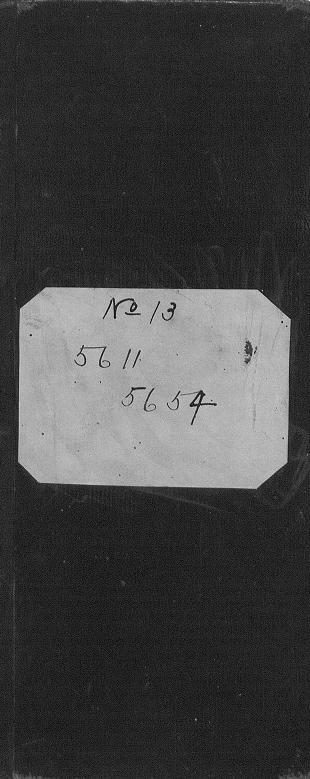 Nº 13
5611
5654